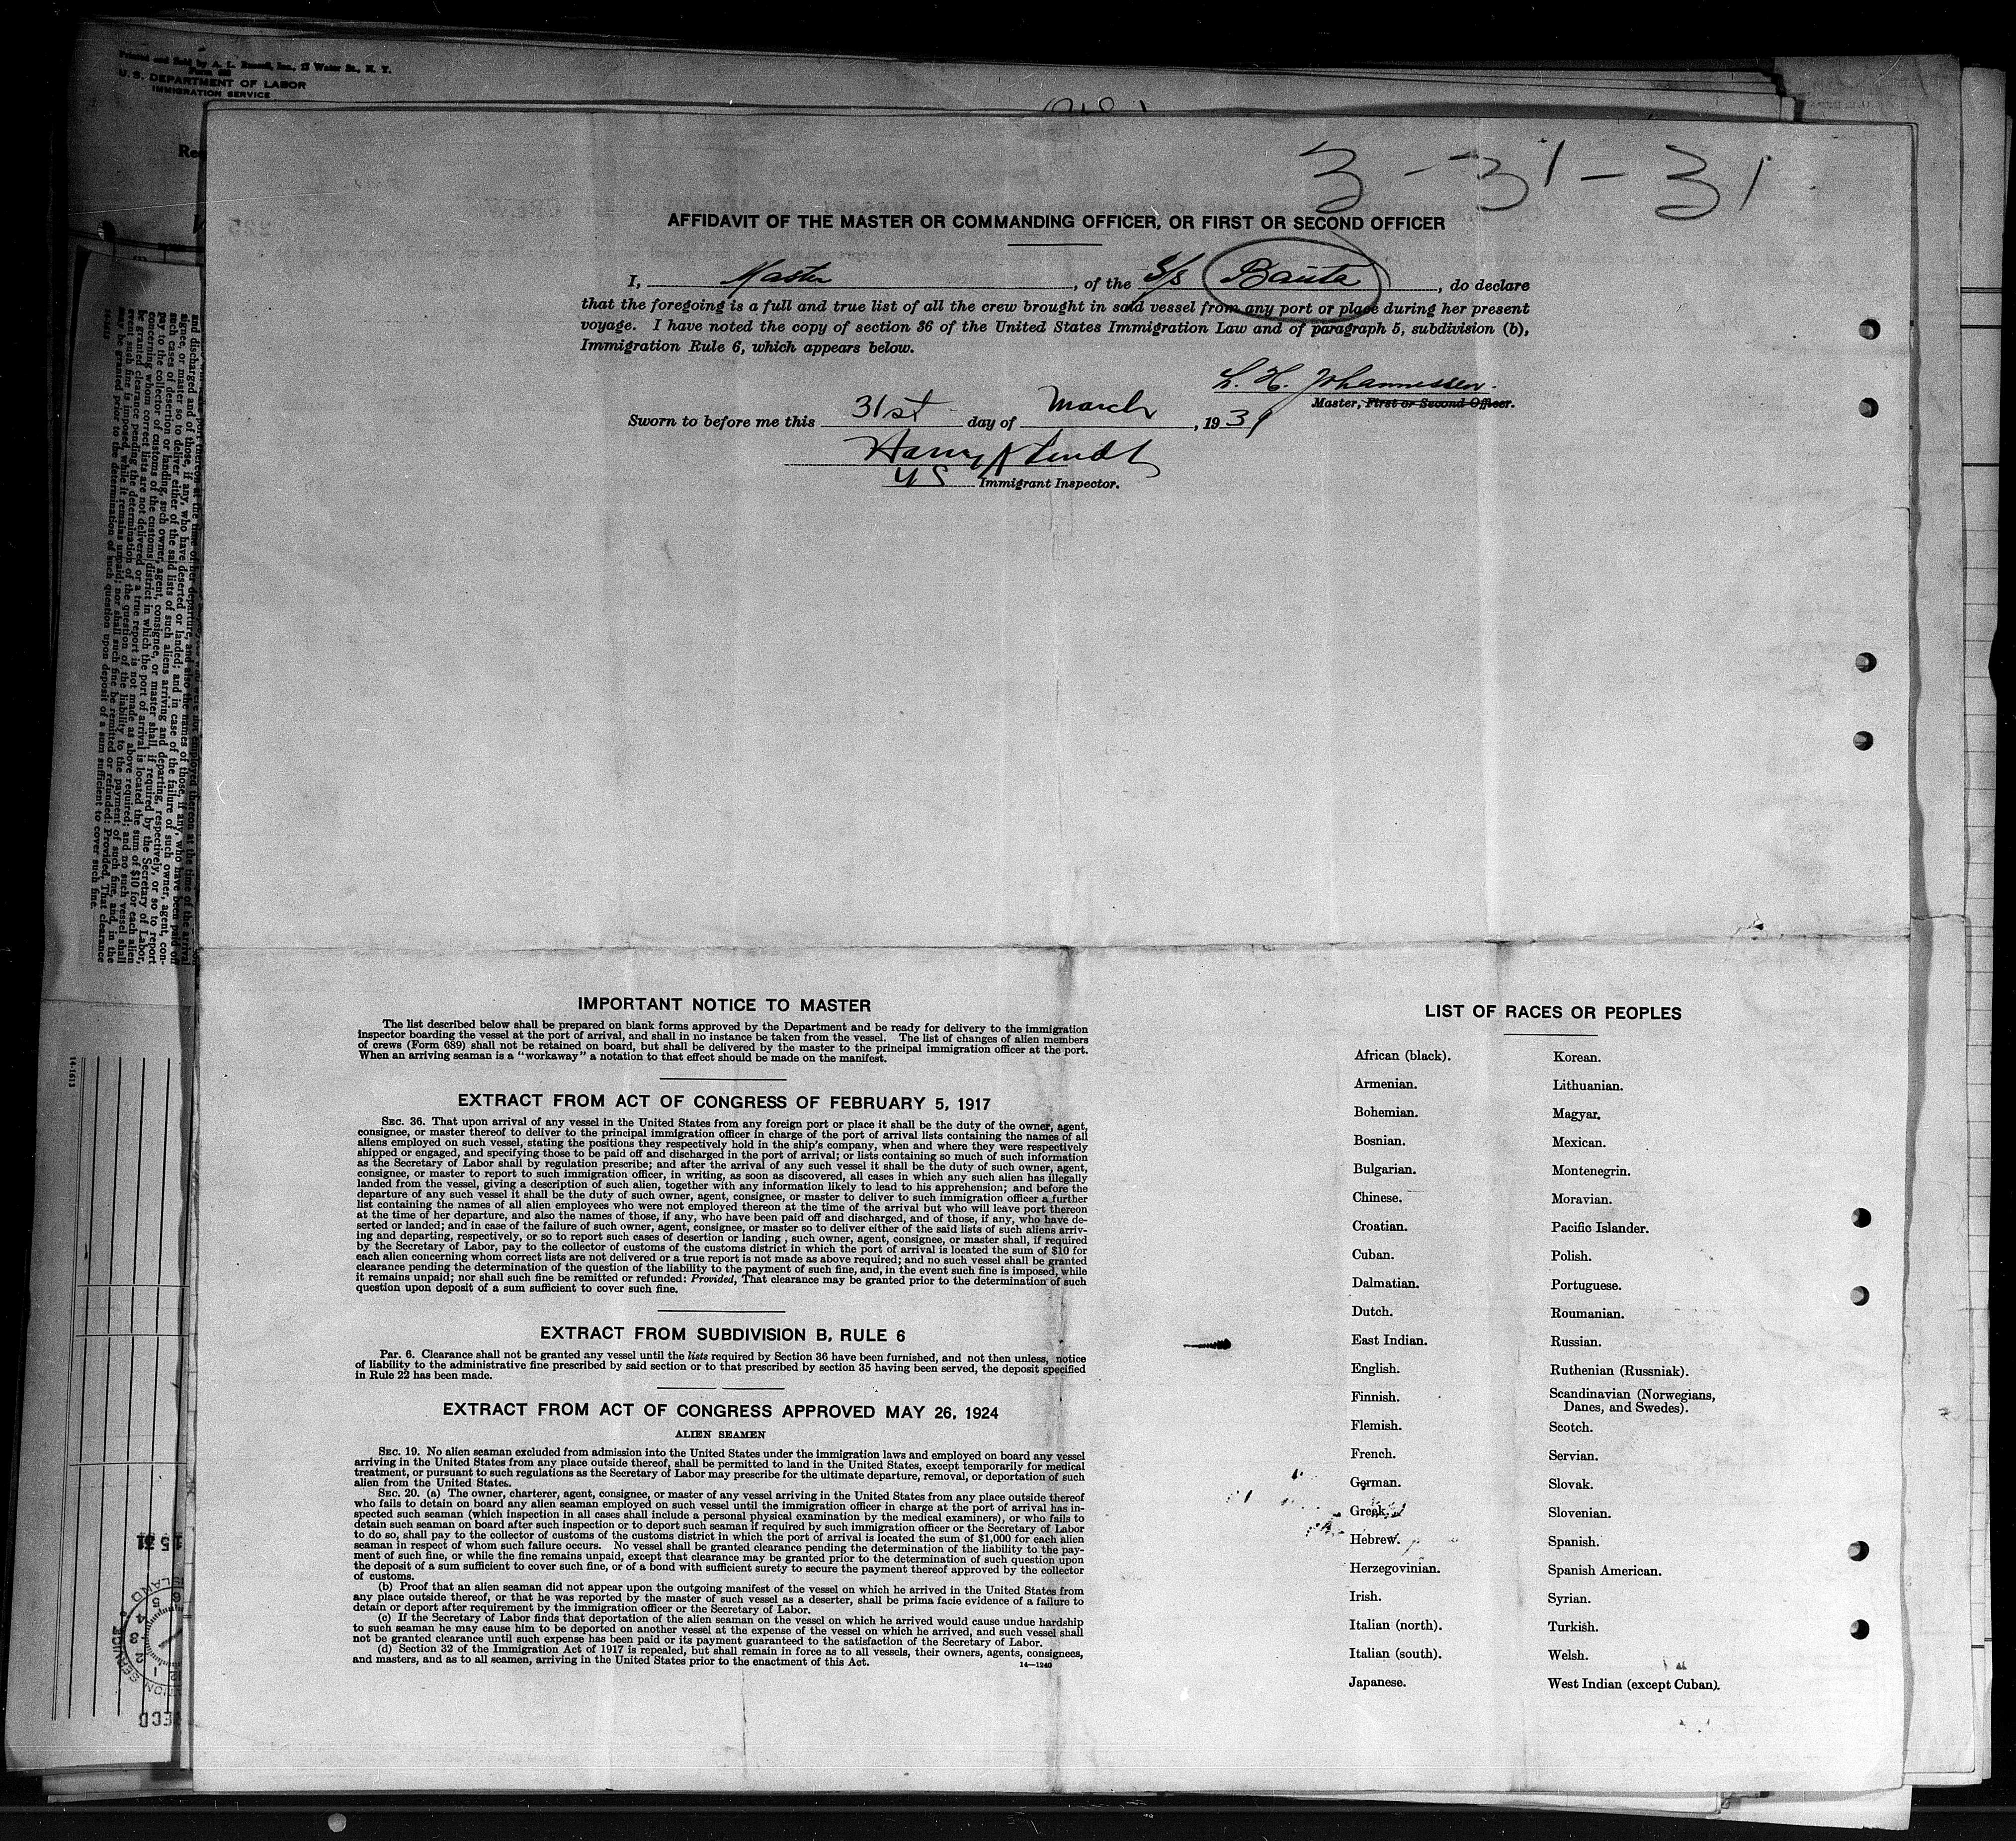 Printed and Sold by A. L. Russell, Inc., 17 Water St., N. Y.
U. S. DEPARTMENT OF LABOR
IMMIGRATION SERVICE
3 - 31 - 31
AFFIDAVIT OF THE MASTER OR COMMANDING OFFICER, OR FIRST OR SECOND OFFICER
I, Master, of the S/s Bauta, do declare
that the foregoing is a full and true list of all the crew brought in said vessel from any port or place during her present
voyage. I have noted the copy of section 36 of the United States Immigration Law and of paragraph 5, subdivision (b),
Immigration Rule 6, which appears below.
L. H. Johannessen.
Master, First or Second Officer.
Sworn to before me this 31st day of March, 1931
Harry
US Immigrant Inspector.
IMPORTANT NOTICE TO MASTER
The list described below shall be prepared on blank forms approved by the Department and be ready for delivery to the immigration
inspector boarding the vessel at the port of arrival, and shall in no instance be taken from the vessel. The list of changes of alien members
of crews (Form 689) shall not be retained on board, but shall be delivered by the master to the principal immigration officer at the port.
When an arriving seaman is a "workaway" a notation to that effect should be made on the manifest.
EXTRACT FROM ACT OF CONGRESS OF FEBRUARY 5, 1917
SEC. 36. That upon arrival of any vessel in the United States from any foreign port or place it shall be the duty of the owner, agent,
consignee, or master thereof to deliver to the principal immigration officer in charge of the port of arrival lists containing the names of all
aliens employed on such vessel, stating the positions they respectively hold in the ship's company, when and where they were respectively
shipped or engaged, and specifying those to be paid off and discharged in the port of arrival; or lists containing so much of such information
as the Secretary of Labor shall by regulation prescribe; and after the arrival of any such vessel it shall be the duty of such owner, agent,
consignee, or master to report to such immigration officer, in writing, as soon as discovered, all cases in which any such alien has illegally
landed from the vessel, giving a description of such alien, together with any information likely to lead to his apprehension; and before the
departure of any such vessel it shall be the duty of such owner, agent, consignee, or master to deliver to such immigration officer a further
list containing the names of all alien employees who were not employed thereon at the time of the arrival but who will leave port thereon
at the time of her departure, and also the names of those, if any, who have been paid off and discharged, and of those, if any, who have de-
serted or landed; and in case of the failure of such owner, agent, consignee, or master so to deliver either of the said lists of such aliens arriv-
ing and departing, respectively, or so to report such cases of desertion or landing , such owner, agent, consignee, or master shall, if required
by the Secretary of Labor, pay to the collector of customs of the customs district in which the port of arrival is located the sum of $10 for
each alien concerning whom correct lists are not delivered or a true report is not made as above required; and no such vessel shall be granted
clearance pending the determination of the question of the liability to the payment of such fine, and, in the event such fine is imposed, while
it remains unpaid; nor shall such fine be remitted or refunded: Provided, That clearance may be granted prior to the determination of such
question upon deposit of a sum sufficient to cover such fine.
EXTRACT FROM SUBDIVISION B, RULE 6
PAR. 6. Clearance shall not be granted any vessel until the lists required by Section 36 have been furnished, and not then unless, notice
of liability to the administrative fine prescribed by said section or to that prescribed by section 35 having been served, the deposit specified
in Rule 22 has been made.
EXTRACT FROM ACT OF CONGRESS APPROVED MAY 26, 1924
ALIEN SEAMEN
SEC. 19. No alien seaman excluded from admission into the United States under the immigration laws and employed on board any vessel
arriving in the United States from any place outside thereof, shall be permitted to land in the United States, except temporarily for medical
treatment, or pursuant to such regulations as the Secretary of Labor may prescribe for the ultimate departure, removal, or deportation of such
alien from the United States.
SEC. 20. (a) The owner, charterer, agent, consignee, or master of any vessel arriving in the United States from any place outside thereof
who fails to detain on board any alien seaman employed on such vessel until the immigration officer in charge at the port of arrival has in-
spected such seaman (which inspection in all cases shall include a personal physical examination by the medical examiners), or who fails to
detain such seaman on board after such inspection or to deport such seaman if required by such immigration officer or the Secretary of Labor
to do so, shall pay to the collector of customs of the customs district in which the port of arrival is located the sum of $1,000 for each alien
seaman in respect of whom such failure occurs. No vessel shall be granted clearance pending the determination of the liability to the pay-
ment of such fine, or while the fine remains unpaid, except that clearance may be granted prior to the determination of such question upon
the deposit of a sum sufficient to cover such fine, or of a bond with sufficient surety to secure the payment thereof approved by the collector
of customs.
(b) Proof that an alien seaman did not appear upon the outgoing manifest of the vessel on which he arrived in the United States from
any place outside thereof, or that he was reported by the master of such vessel as a deserter, shall be prima facie evidence of a failure to
detain or deport after requirement by the immigration officer or the Secretary of Labor.
(c) If the Secretary of Labor finds that deportation of the alien seaman on the vessel on which he arrived would cause undue hardship
to such seaman he may cause him to be deported on another vessel at the expense of the vessel on which he arrived, and such vessel shall
not be granted clearance until such expense has been paid or its payment guaranteed to the satisfaction of the Secretary of Labor.
(d) Section 32 of the Immigration Act of 1917 is repealed, but shall remain in force as to all vessels, their owners, agents, consignees,
and masters, and as to all seamen, arriving in the United States prior to the enactment of this Act.
14—1240
LIST OF RACES OR PEOPLES
African (black).
Armenian.
Bohemian.
Bosnian.
Bulgarian.
Chinese.
Croatian.
Cuban.
Dalmatian.
Dutch.
East Indian.
English.
Finnish.
Flemish.
French.
German.
Greek.
Hebrew.
Herzegovinian.
Irish.
Italian (north).
Italian (south).
Japanese.
Korean.
Lithuanian.
Magyar.
Mexican.
Montenegrin.
Moravian.
Pacific Islander.
Polish.
Portuguese.
Roumanian.
Russian.
Ruthenian (Russniak).
Scandinavian (Norwegians,
Danes, and Swedes).
Scotch.
Servian.
Slovak.
Slovenian.
Spanish.
Spanish American.
Syrian.
Turkish.
Welsh.
West Indian (except Cuban).